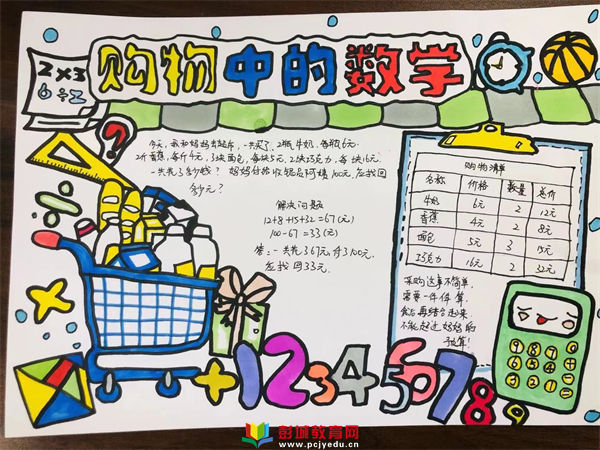 购物中的数学
2×3
6÷2
?
今天，我和妈妈去超市，一共买了2瓶牛奶，每瓶6元
2斤香蕉，每斤4元，3块面包，每块5元，2块巧克力，每块16元
一共花了多少钱？妈妈付给收银员阿姨100元，应找回
多少元？
解决问题
12+8+15+32=67(元)
100-67=33(元)
答：一共花了67元，付了100元，
应找回33元。
购物清单
名称 价格 数量 总价
牛奶 6元 2 12元
香蕉 4元 2 8元
面包 5元 3 15元
巧克力 16元 2 32元
采购这事不简单，
需要一件件算，
最后再结合起来
不能超过妈妈的
预算！
+123456789
彭城教育网
www.pcjyedu.cn